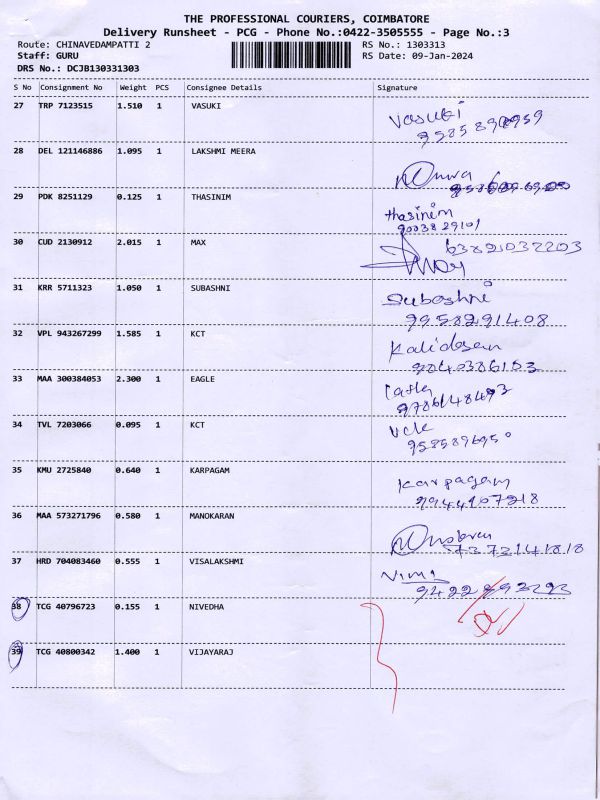 THE PROFESSIONAL COURIERS, COIMBATORE
Delivery Runsheet - PCG - Phone No.:0422-3505555 - Page No.:3
Route: CHINAVEDAMPATTI 2 RS No.: 1303313
Staff: GURU RS Date: 09-Jan-2024
DRS No.: DCJB130331303
S No Consignment No Weight PCS Consignee Details Signature
27 TRP 7123515 1.510 1 VASUKI Vasuki
28 DEL 121146886 1.095 1 LAKSHMI MEERA
29 PDK 8251129 0.125 1 THASINIM thasinim
9003829101
30 CUD 2130912 2.015 1 MAX
31 KRR 5711323 1.050 1 SUBASHNI Subashni
9958291408
32 VPL 943267299 1.585 1 KCT Kalidasan
9840386153
33 MAA 300384053 2.300 1 EAGLE
34 TVL 7203066 0.095 1 KCT
35 KMU 2725840 0.640 1 KARPAGAM Karpagam
9944107218
36 MAA 573271796 0.580 1 MANOKARAN
37 HRD 704083460 0.555 1 VISALAKSHMI
38 TCG 40796723 0.155 1 NIVEDHA
39 TCG 40800342 1.400 1 VIJAYARAJ